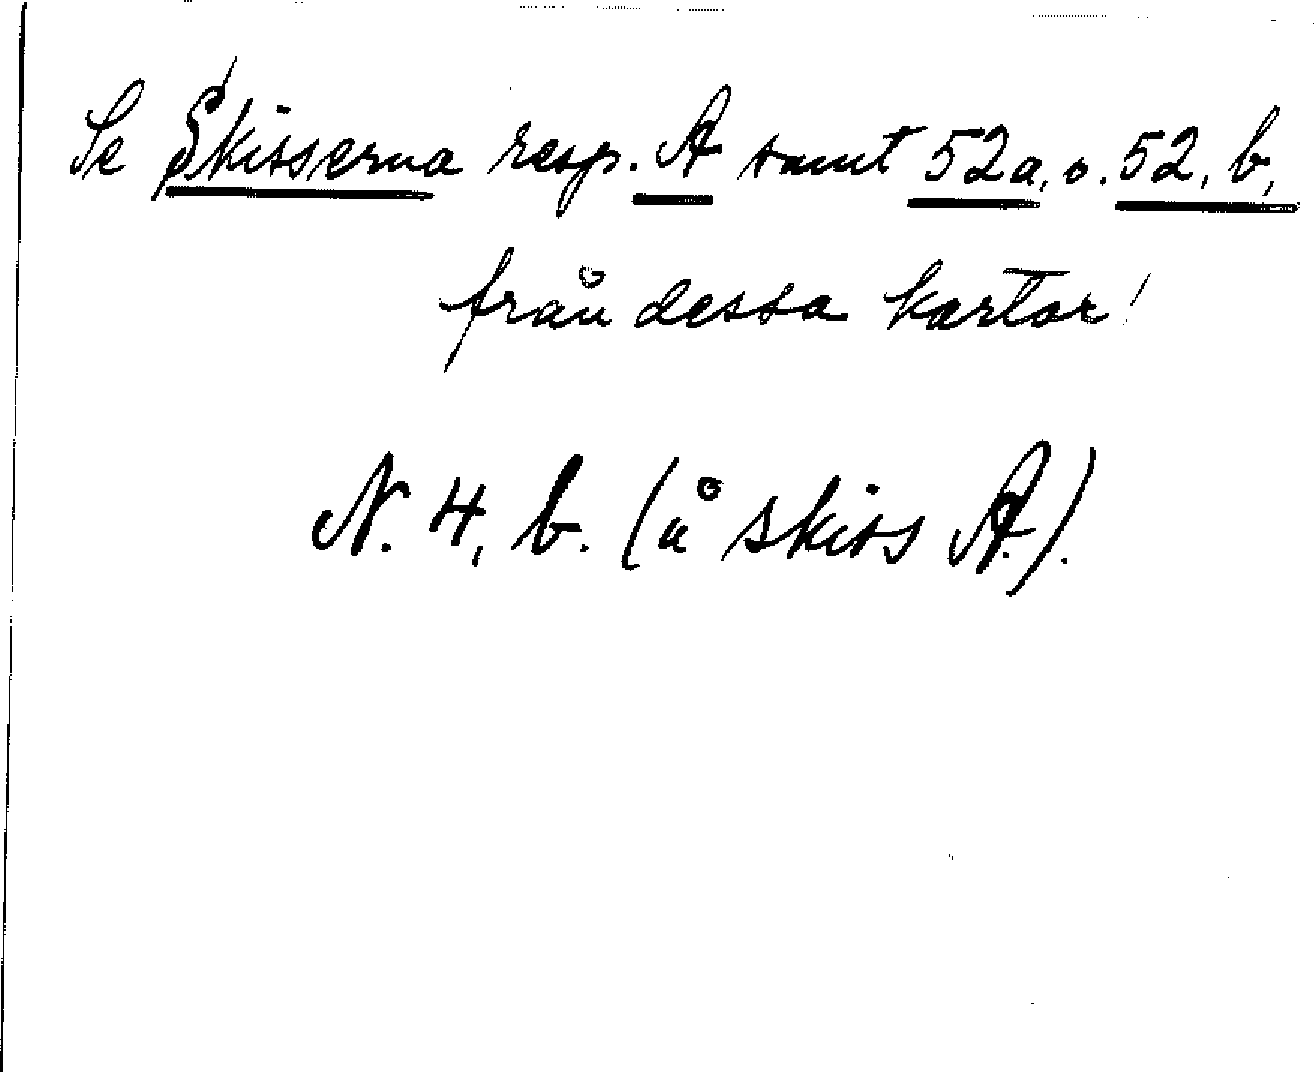 Se Skisserna resp. A samt 52a, o. 52, b,
från dessa kartor!
N. 4, b. (å skiss A.).